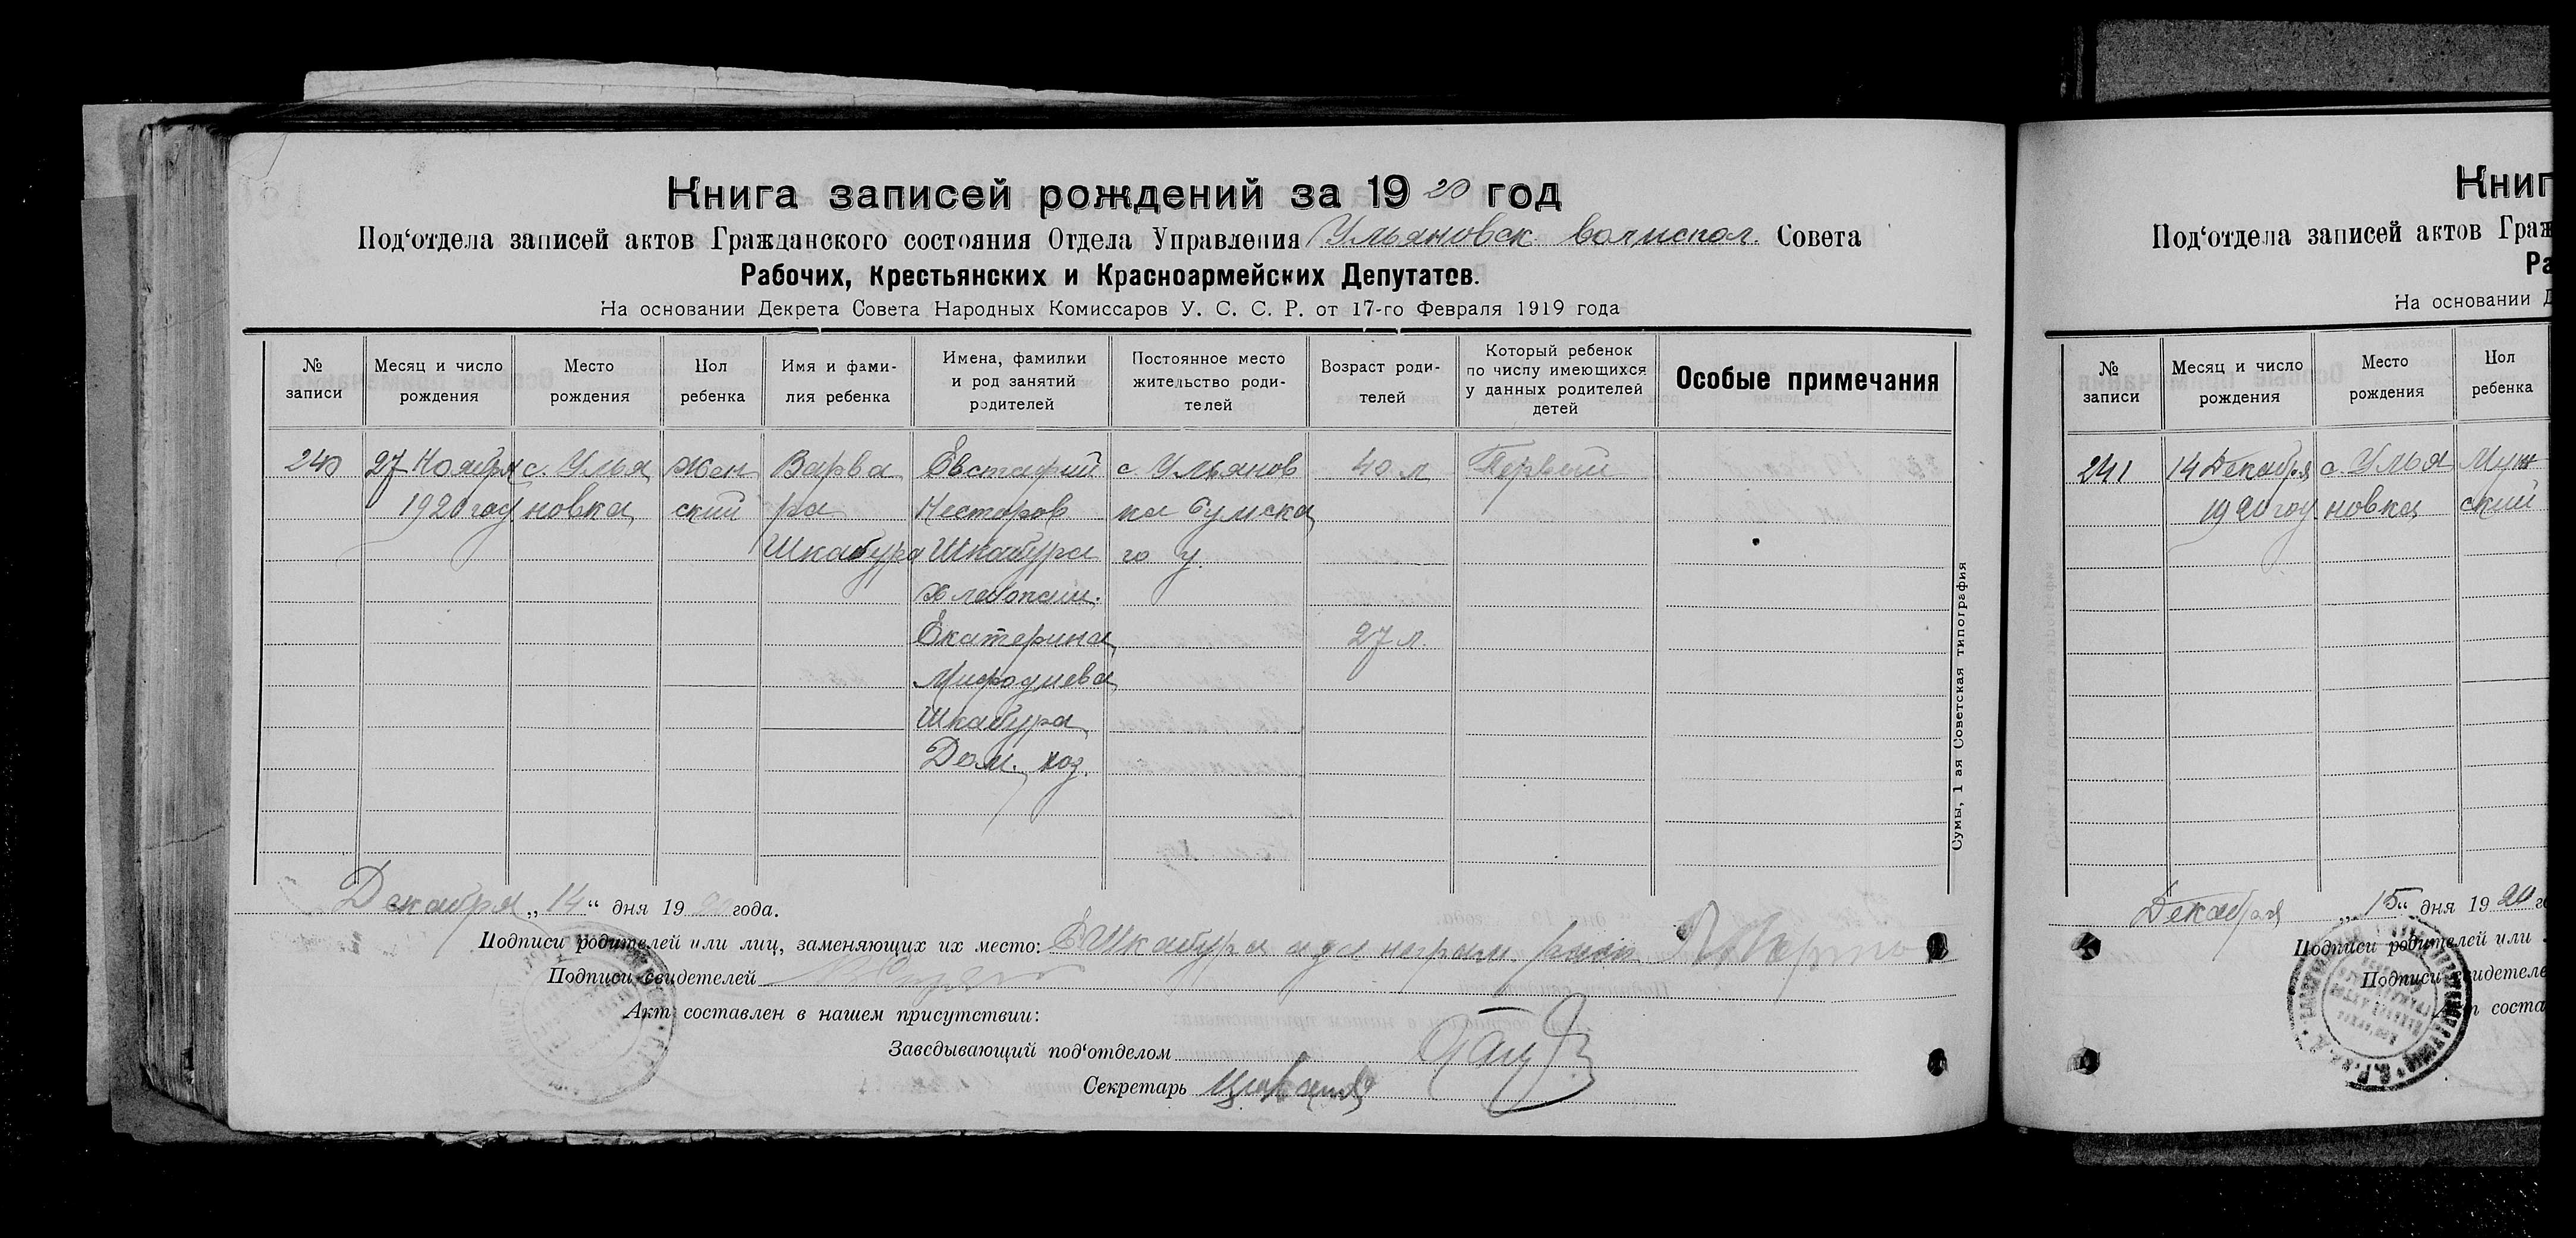 Книга записей рождений за 1920 год
Под‘отдела записей актов Гражданского состояния Отдела Управления Ульяновск. волиспол. Совета
Рабочих, Крестьянских и Красноармейских Депутатов.
На основании Декрета Совета Народных Комиссаров У. С. С. Р. от 17-го Февраля 1919 года
№ записи
Месяц и число рождения
Место рождения
Пол ребенка
Имя и фами-
лия ребенка
Имена, фамилии
и род занятий
родителей
Постоянное место
жительство роди-
телей
Возраст роди-
телей
Который ребенок
по числу имеющихся
у данных родителей
детей
Особые примечания
240
27 Ноября
1920 год
с. Улья
новка
Жен
ский
Варва
ра
Шкабура
Евстафий
Несторов
Шкабура
Хлебопаш.
Екатерина
Мифодиева
Шкабура
Дом. хоз.
с. Ульянов
ка Сумска
го у.
40 л
27 л.
Первый
Декабря „14“ дня 1920 года.
Подписи родителей или лиц, заменяющих их место: Е Шкабура а за неграм. расп.
Подписи свидетелей
Акт составлен в нашем присутствии:
Заведывающий под‘отделом
Секретарь
Сумы, 1 ая Советская типография
Книг
Под‘отдела записей актов Граж
Ра
На основании Д
№ записи
Месяц и число рождения
Место рождения
Пол ребенка
241
14 Декабря
1920 год
с. Улья
новка
Муж
ский
Декабря „15“ дня 1920 го
Подписи родителей или
Подписи свидетеле
Акт соста